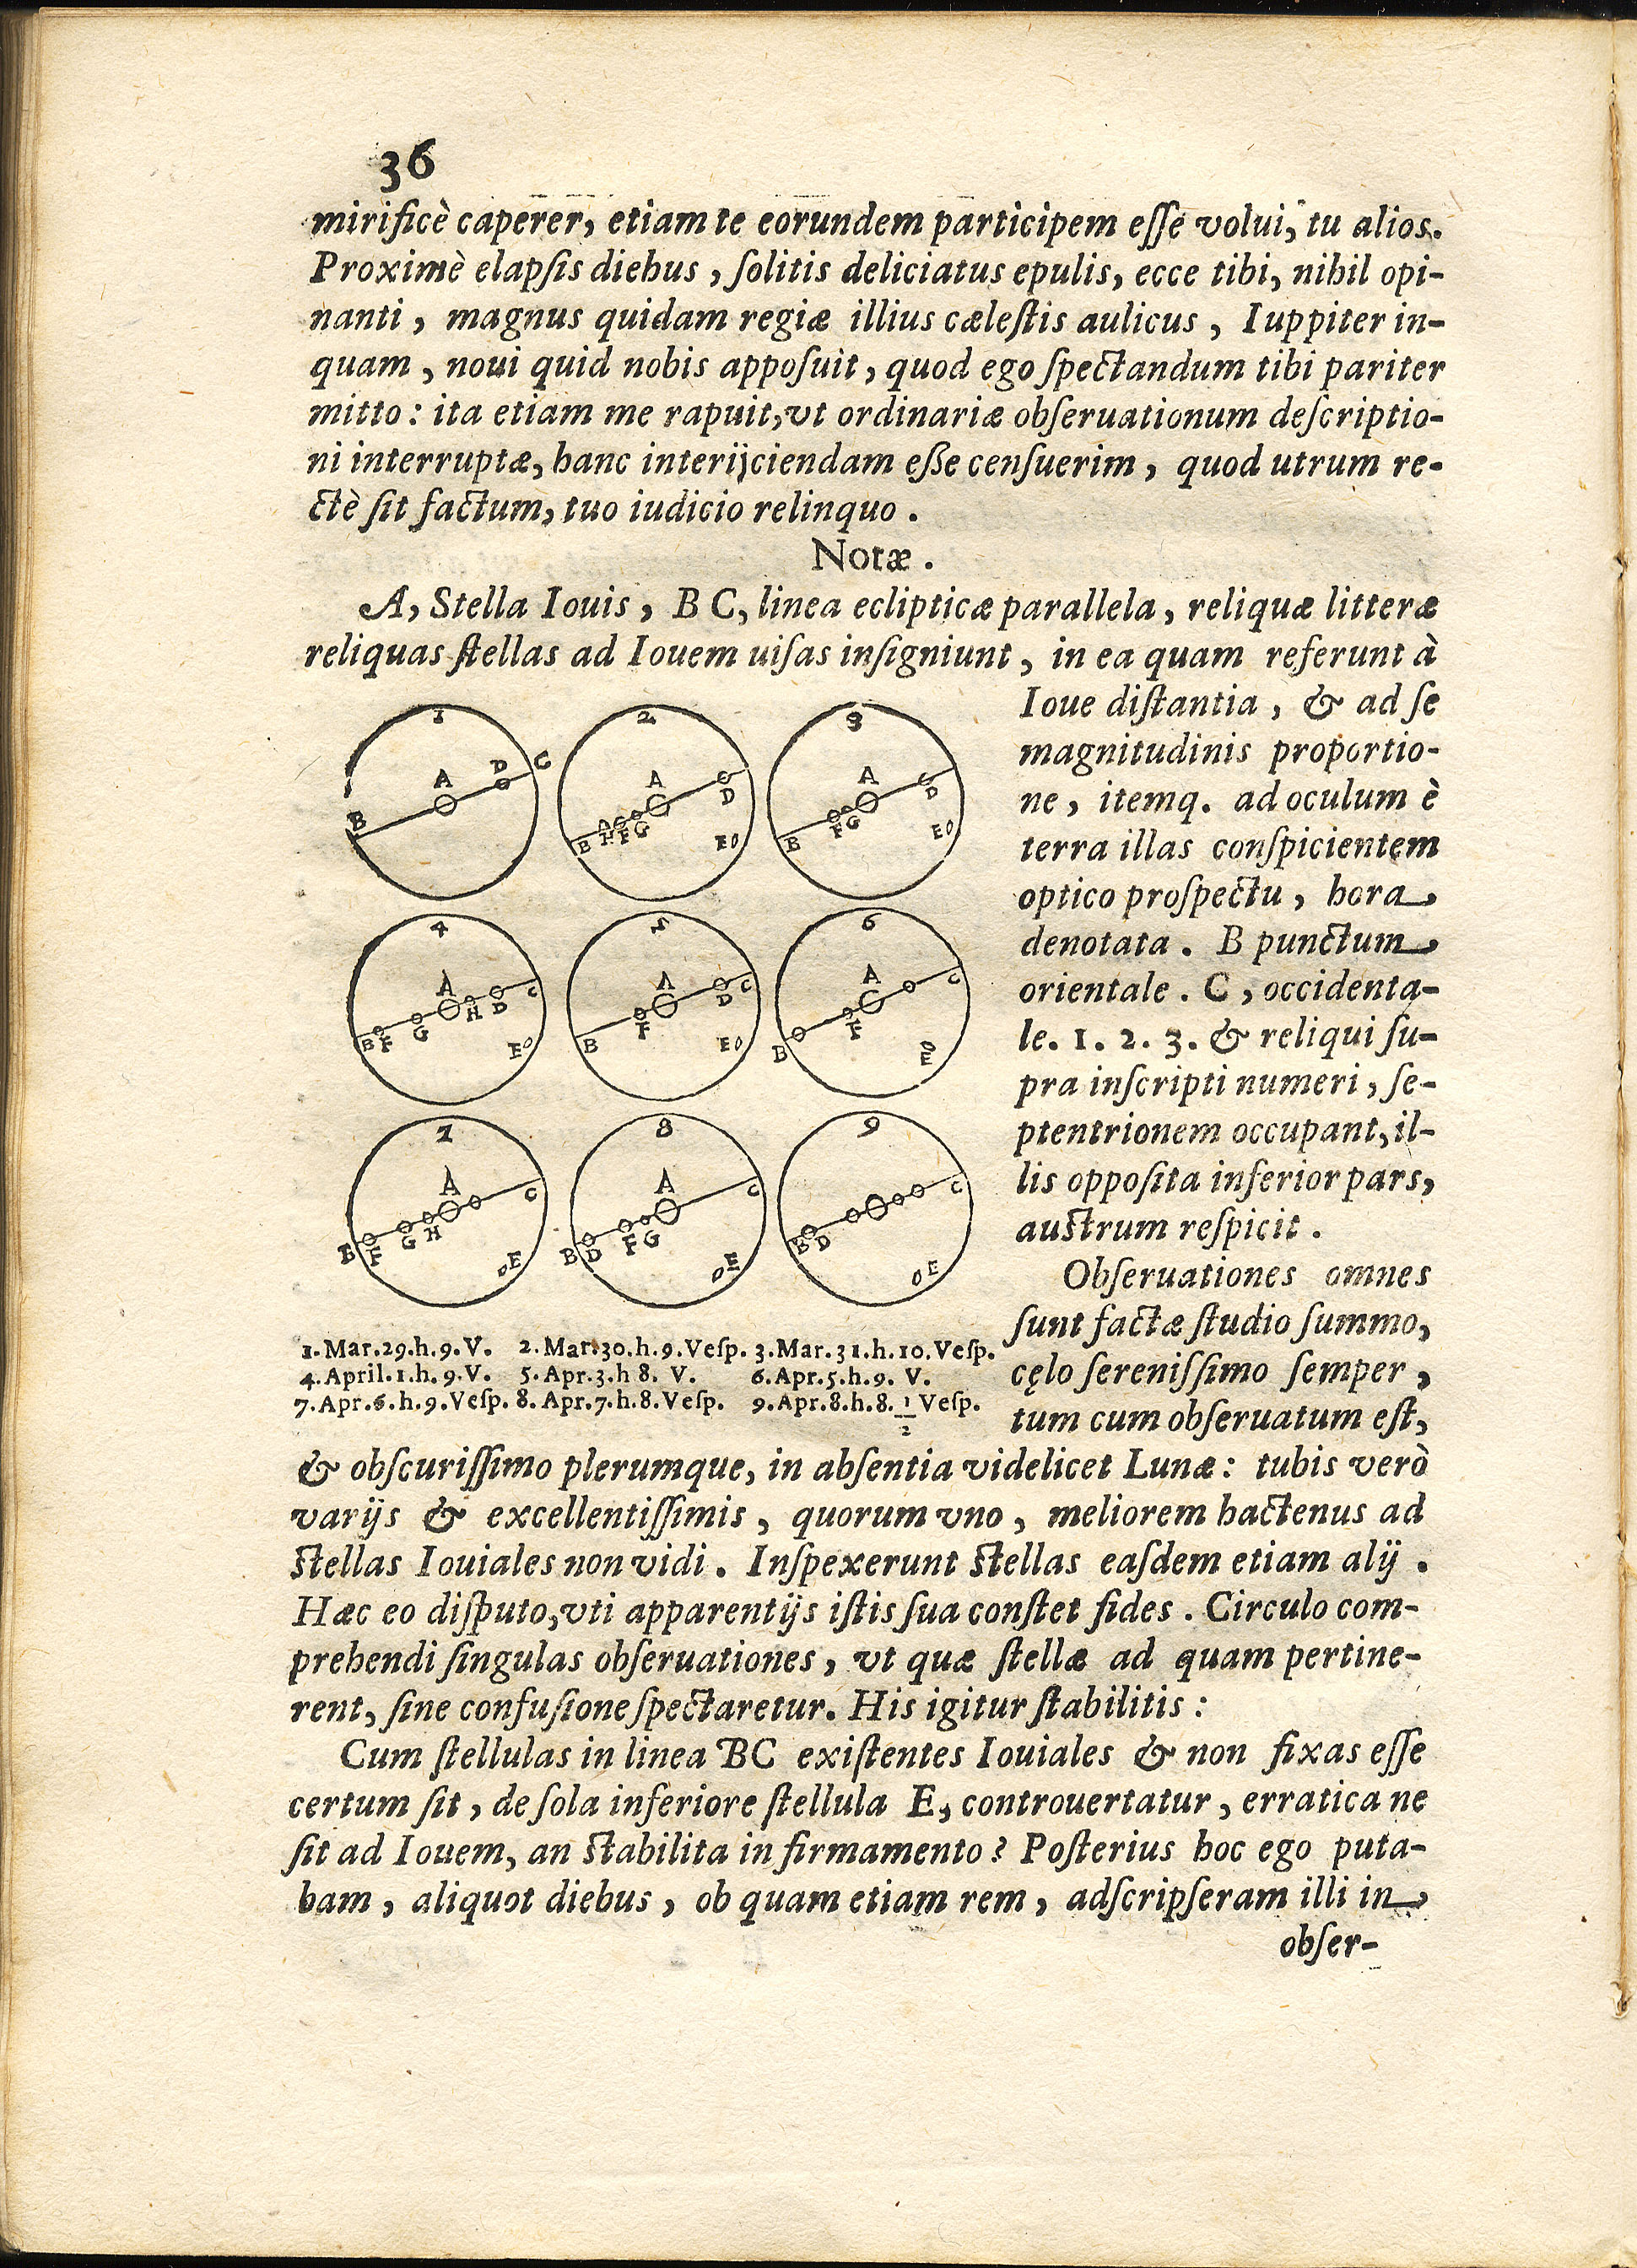 36
mirificè caperer, etiam te eorundem participem eſſe volui, tu alios.
Proximè elapſis diebus, ſolitis deliciatus epulis, ecce tibi, nihil opi-
nanti, magnus quidam regiæ illius cæleſtis aulicus, Iuppiter in-
quam, noui quid nobis appoſuit, quod ego ſpectandum tibi pariter
mitto: ita etiam me rapuit, vt ordinariæ obſeruationum deſcriptio-
ni interruptæ, hanc interijciendam eße cenſuerim, quod utrum re-
ctè ſit factum, tuo iudicio relinquo.
Notæ.
A, Stella Iouis, B C, linea eclipticæ parallela, reliquæ litteræ
reliquas ſtellas ad Iouem uiſas inſigniunt, in ea quam referunt à
Ioue diſtantia, & ad ſe
magnitudinis proportio-
ne, itemq. ad oculum è
terra illas conſpicientem
optico proſpectu, hora
denotata. B punctum
orientale. C, occidenta-
le. 1. 2. 3. & reliqui ſu-
pra inſcripti numeri, ſe-
ptentrionem occupant, il-
lis oppoſita inferior pars,
auſtrum reſpicit.
Obſeruationes omnes
ſunt factæ ſtudio ſummo,
cęlo ſereniſſimo ſemper,
tum cum obſeruatum eſt,
1 A D C B
2 A D B H F G E
3 A D B F G E
4 A C B F G H D E
5 A C D B F E
6 A C B F E
7 A C B F G H E
8 A C B D F G E
9 C B D E
1. Mar. 29. h. 9. V. 2. Mar. 30. h. 9. Veſp. 3. Mar. 31. h. 10. Veſp.
4. April. 1. h. 9. V. 5. Apr. 3. h 8. V. 6. Apr. 5. h. 9. V.
7. Apr. 6. h. 9. Veſp. 8. Apr. 7. h. 8. Veſp. 9. Apr. 8. h. 8. 1/2 Veſp.
& obſcuriſſimo plerumque, in abſentia videlicet Lunæ: tubis verò
varijs & excellentiſſimis, quorum vno, meliorem hactenus ad
ſtellas Iouiales non vidi. Inſpexerunt ſtellas eaſdem etiam alij.
Hæc eo diſputo, vti apparentijs iſtis ſua conſtet fides. Circulo com-
prehendi ſingulas obſeruationes, vt quæ ſtellæ ad quam pertine-
rent, ſine confuſione ſpectaretur. His igitur ſtabilitis:
Cum ſtellulas in linea BC exiſtentes Iouiales & non fixas eſſe
certum ſit, de ſola inferiore ſtellula E, controuertatur, erratica ne
ſit ad Iouem, an ſtabilita in firmamento? Poſterius hoc ego puta-
bam, aliquot diebus, ob quam etiam rem, adſcripſeram illi in
obſer-